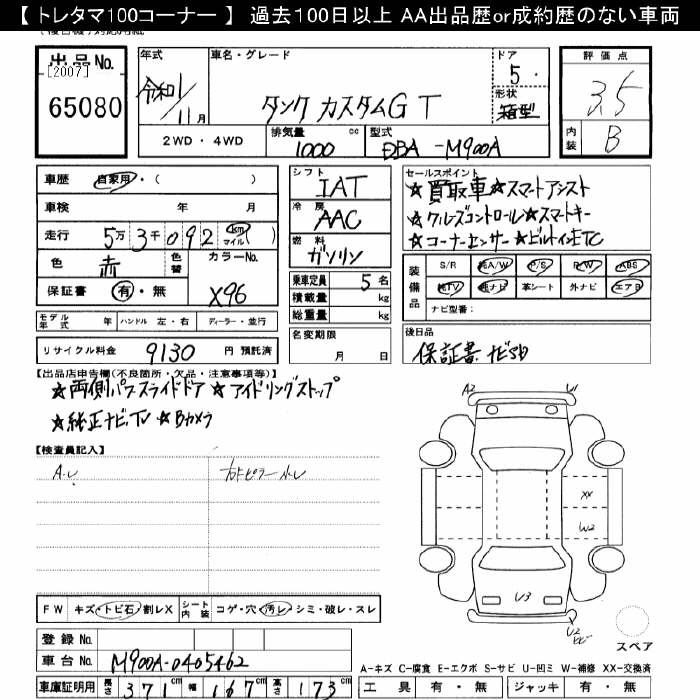 【 トレタマ100コーナー 】 過去100日以上 AA出品歴or成約歴のない車両
出品 No.
[2007]
65080
年式
令和1/11月
車名・グレード
タンク カスタムG T
ドア
5
形状
箱型
評価点
3.5
内装
B
2WD ・ 4WD
排気量
1000 cc
型式
DBA -M900A
車歴 自家用・( )
車検 年 月
走行 5万 3千 092 (km マイル)
色 赤 色替 カラーNo.
X96
保証書 有・無
シフト
IAT
冷房
AAC
燃料
ガソリン
乗車定員 5 名
積載量 kg
総重量 kg
セールスポイント
★買取車★スマートアシスト
★クルーズコントロール★スマートキー
★コーナーセンサー★ビルトインETC
装備品
S/R 純A/W P/S P/W ABS
純TV 純ナビ 革シート 外ナビ エアB
ナビ型番:
モデル年式 年 ハンドル 左・右 ディーラー・並行
リサイクル料金 9130 円 預託済
名変期限
月 日
後日品
保証書 ナビSD
【出品店申告欄(不良箇所・欠品・注意事項等)】
★両側パワースライドドア ★アイドリングストップ
★純正ナビTV ★Bカメラ
【検査員記入】
A2 U1
XX
W2
U3
U2
スペア
FW キズ・トビ石・割レX シート内装 コゲ・穴・汚レ・シミ・破レ・スレ
登録 No.
車台 No. M900A-0405462
車庫証明用 長さ 371 cm 幅 167 cm 高さ 173 cm
A-キズ C-腐食 E-エクボ S-サビ U-凹ミ W-補修 XX-交換済
工具 有・無 ジャッキ 有・無